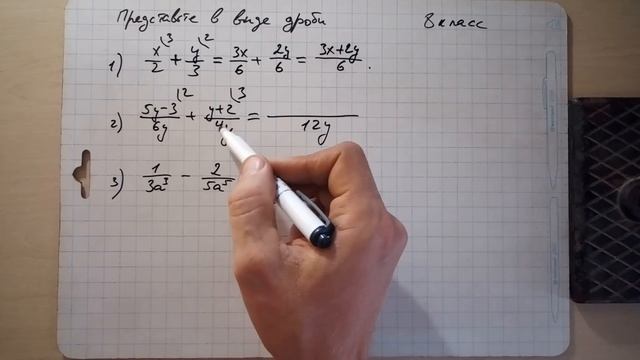 Представьте в виде дроби 8 класс
1) x/2 \3 + y/3 \2 = 3x/6 + 2y/6 = 3x+2y/6 .
2) 5y-3/6y \2 + y+2/4y \3 = /12y
3) 1/3a³ - 2/5a⁵